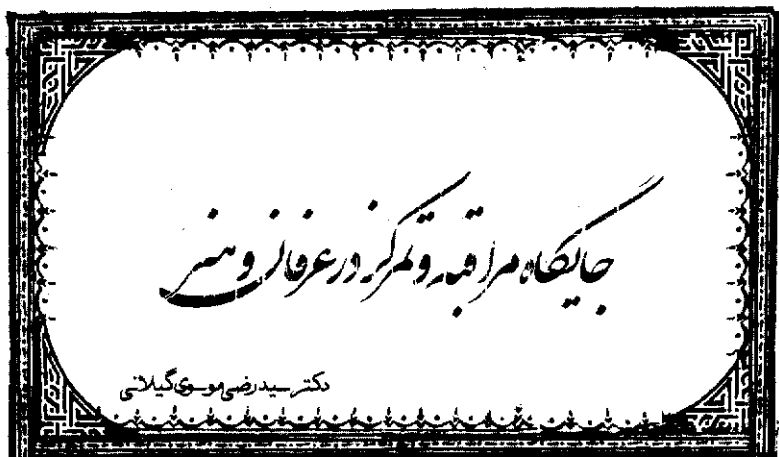 جایگاه مراقبه و تمرکز در عرفان و هنر
دکتر سید رضی موسوی گیلانی